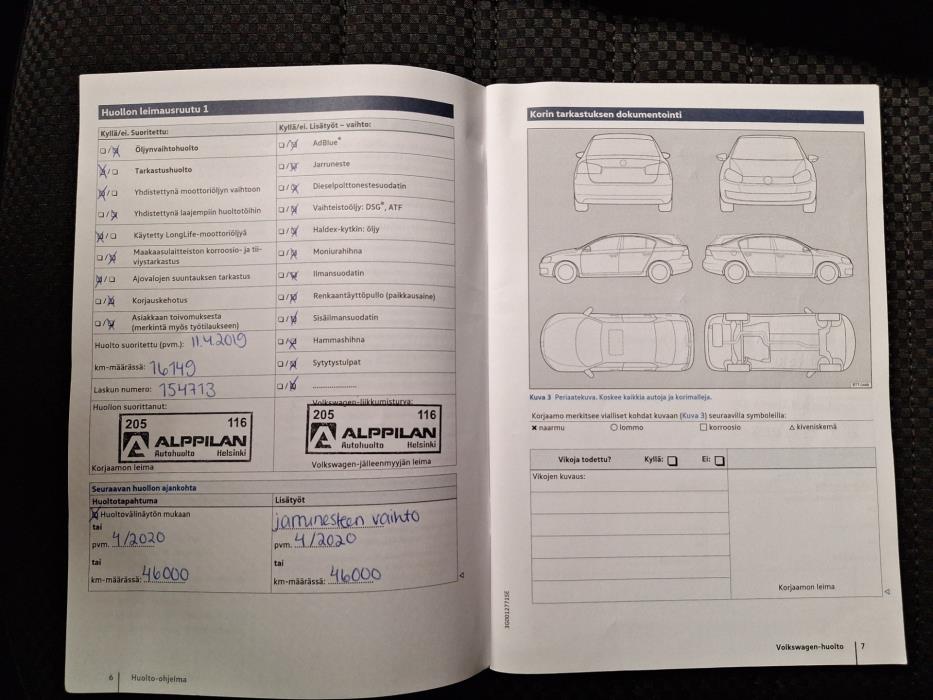 Huollon leimausruutu 1
Kyllä/ei. Suoritettu:
Öljynvaihtohuolto
Tarkastushuolto
Yhdistettynä moottoriöljyn vaihtoon
Yhdistettynä laajempiin huoltotöihin
Käytetty LongLife-moottoriöljyä
Maakaasulaitteiston korroosio- ja tii-
viystarkastus
Ajovalojen suuntauksen tarkastus
Korjauskehotus
Asiakkaan toivomuksesta
(merkintä myös työtilaukseen)
Huolto suoritettu (pvm.): 11.4.2019
km-määrässä: 16149
Laskun numero: 154713
Huollon suorittanut:
205 116
ALPPILAN
Autohuolto Helsinki
Korjaamon leima
Kyllä/ei. Lisätyöt – vaihto:
AdBlue®
Jarruneste
Dieselpolttonestesuodatin
Vaihteistoöljy: DSG®, ATF
Haldex-kytkin: öljy
Moniurahihna
Ilmansuodatin
Renkaantäyttöpullo (paikkausaine)
Sisäilmansuodatin
Hammashihna
Sytytystulpat
Volkswagen-liikkumisturva:
205 116
ALPPILAN
Autohuolto Helsinki
Volkswagen-jälleenmyyjän leima
Seuraavan huollon ajankohta
Huoltotapahtuma
Huoltovälinäytön mukaan
tai
pvm. 4/2020
tai
km-määrässä: 46000
Lisätyöt
jarrunesteen vaihto
pvm. 4/2020
tai
km-määrässä: 46000
6 Huolto-ohjelma
Korin tarkastuksen dokumentointi
Kuva 3 Periaatekuva. Koskee kaikkia autoja ja korimalleja.
Korjaamo merkitsee vialliset kohdat kuvaan (Kuva 3) seuraavilla symboleilla:
naarmu lommo korroosio kiveniskemä
Vikoja todettu? Kyllä: Ei:
Vikojen kuvaus:
Korjaamon leima
3G0012771SE
Volkswagen-huolto 7